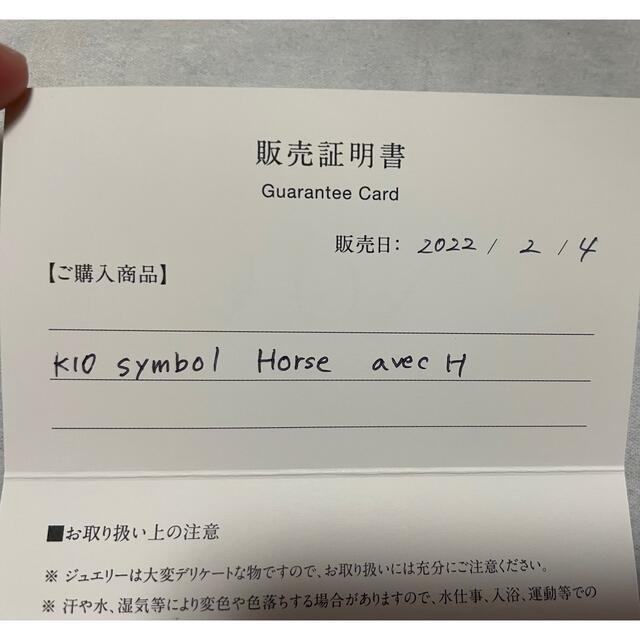 販売証明書
Guarantee Card
販売日: 2022 / 2 / 4
【ご購入商品】
K10 symbol Horse avec H
■お取り扱い上の注意
※ ジュエリーは大変デリケートな物ですので、お取り扱いには充分にご注意ください。
※ 汗や水、湿気等により変色や色落ちする場合がありますので、水仕事、入浴、運動等での